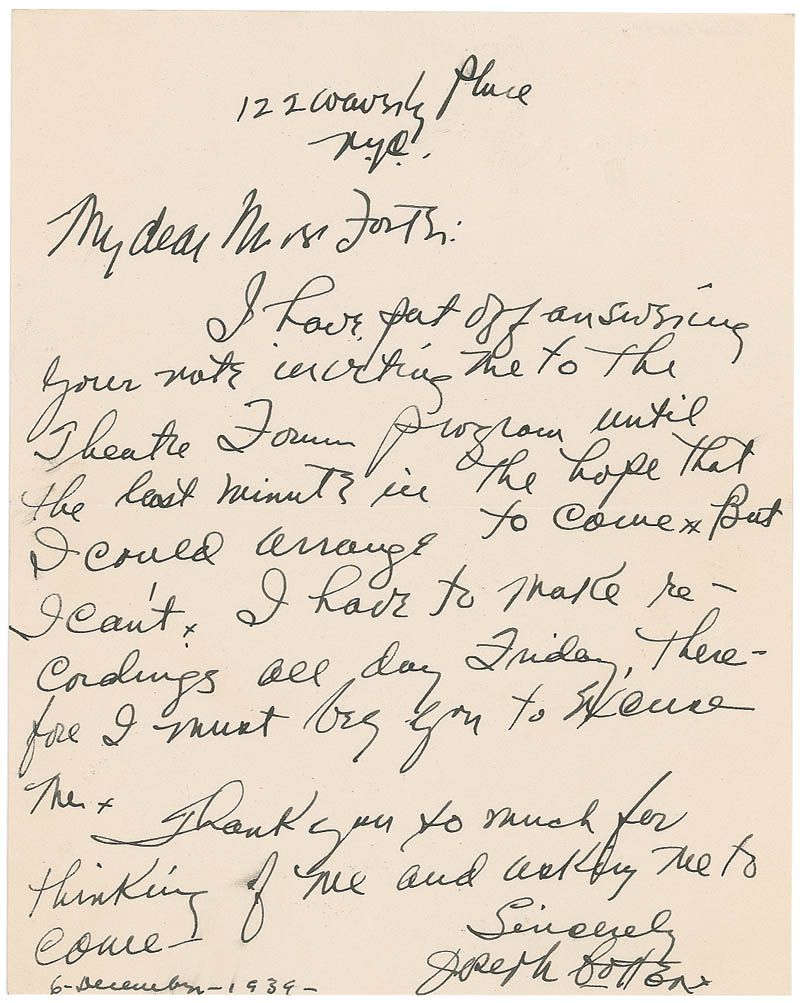 122 Waverly Place
N.Y.C.
My dear Miss Forth:
I have put off answering
your note inviting me to the
Theatre Forum program until
the last minute in the hope that
I could arrange to come x But
I can't x I have to make re-
cordings all day Friday, there-
fore I must beg you to excuse
me x
Thank you so much for
thinking of me and asking me to
come-
Sincerely
Joseph Cotten x
6-December-1939-